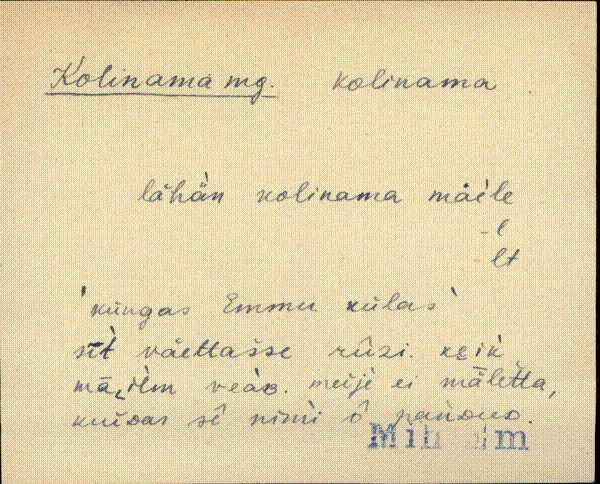 Kolinama mg. kolinama
lähän kolinama mäile
-l
-lt
'küngas Emmu külas'
siit väettässe rūzi. keik
mā,ilm veàB. meije ei mäletta,
kuiDas sê nimi ô panDuD.